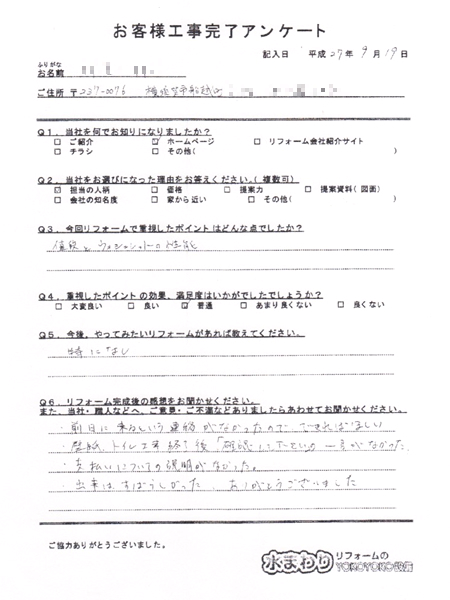 お客様工事完了アンケート
記入日 平成27年9月19日
ふりがな
お名前
ご住所 〒237-0076 横須賀市船越町
Q1. 当社を何でお知りになりましたか?
□ ご紹介 ☑ ホームページ □ リフォーム会社紹介サイト
□ チラシ □ その他( )
Q2. 当社をお選びになった理由をお答えください。(複数可)
☑ 担当の人柄 □ 価格 □ 提案力 □ 提案資料(図面)
□ 会社の知名度 □ 家から近い □ その他( )
Q3. 今回リフォームで重視したポイントはどんな点でしたか?
値段とウォシュレットの性能
Q4. 重視したポイントの効果、満足度はいかがでしたでしょうか?
□ 大変良い □ 良い ☑ 普通 □ あまり良くない □ 良くない
Q5. 今後、やってみたいリフォームがあれば教えてください。
特になし
Q6. リフォーム完成後の感想をお聞かせください。
また、当社・職人などへ、ご意見・ご不満などありましたらあわせてお聞かせください。
・前日に来るという連絡がなかったので、できればほしい
・壁紙、トイレ工事終了後「確認して下さい」の一言がなかった
・支払いについての説明がなかった。
・出来はすばらしかった。ありがとうございました
ご協力ありがとうございました。
水まわり リフォームの
YOKOYOKO